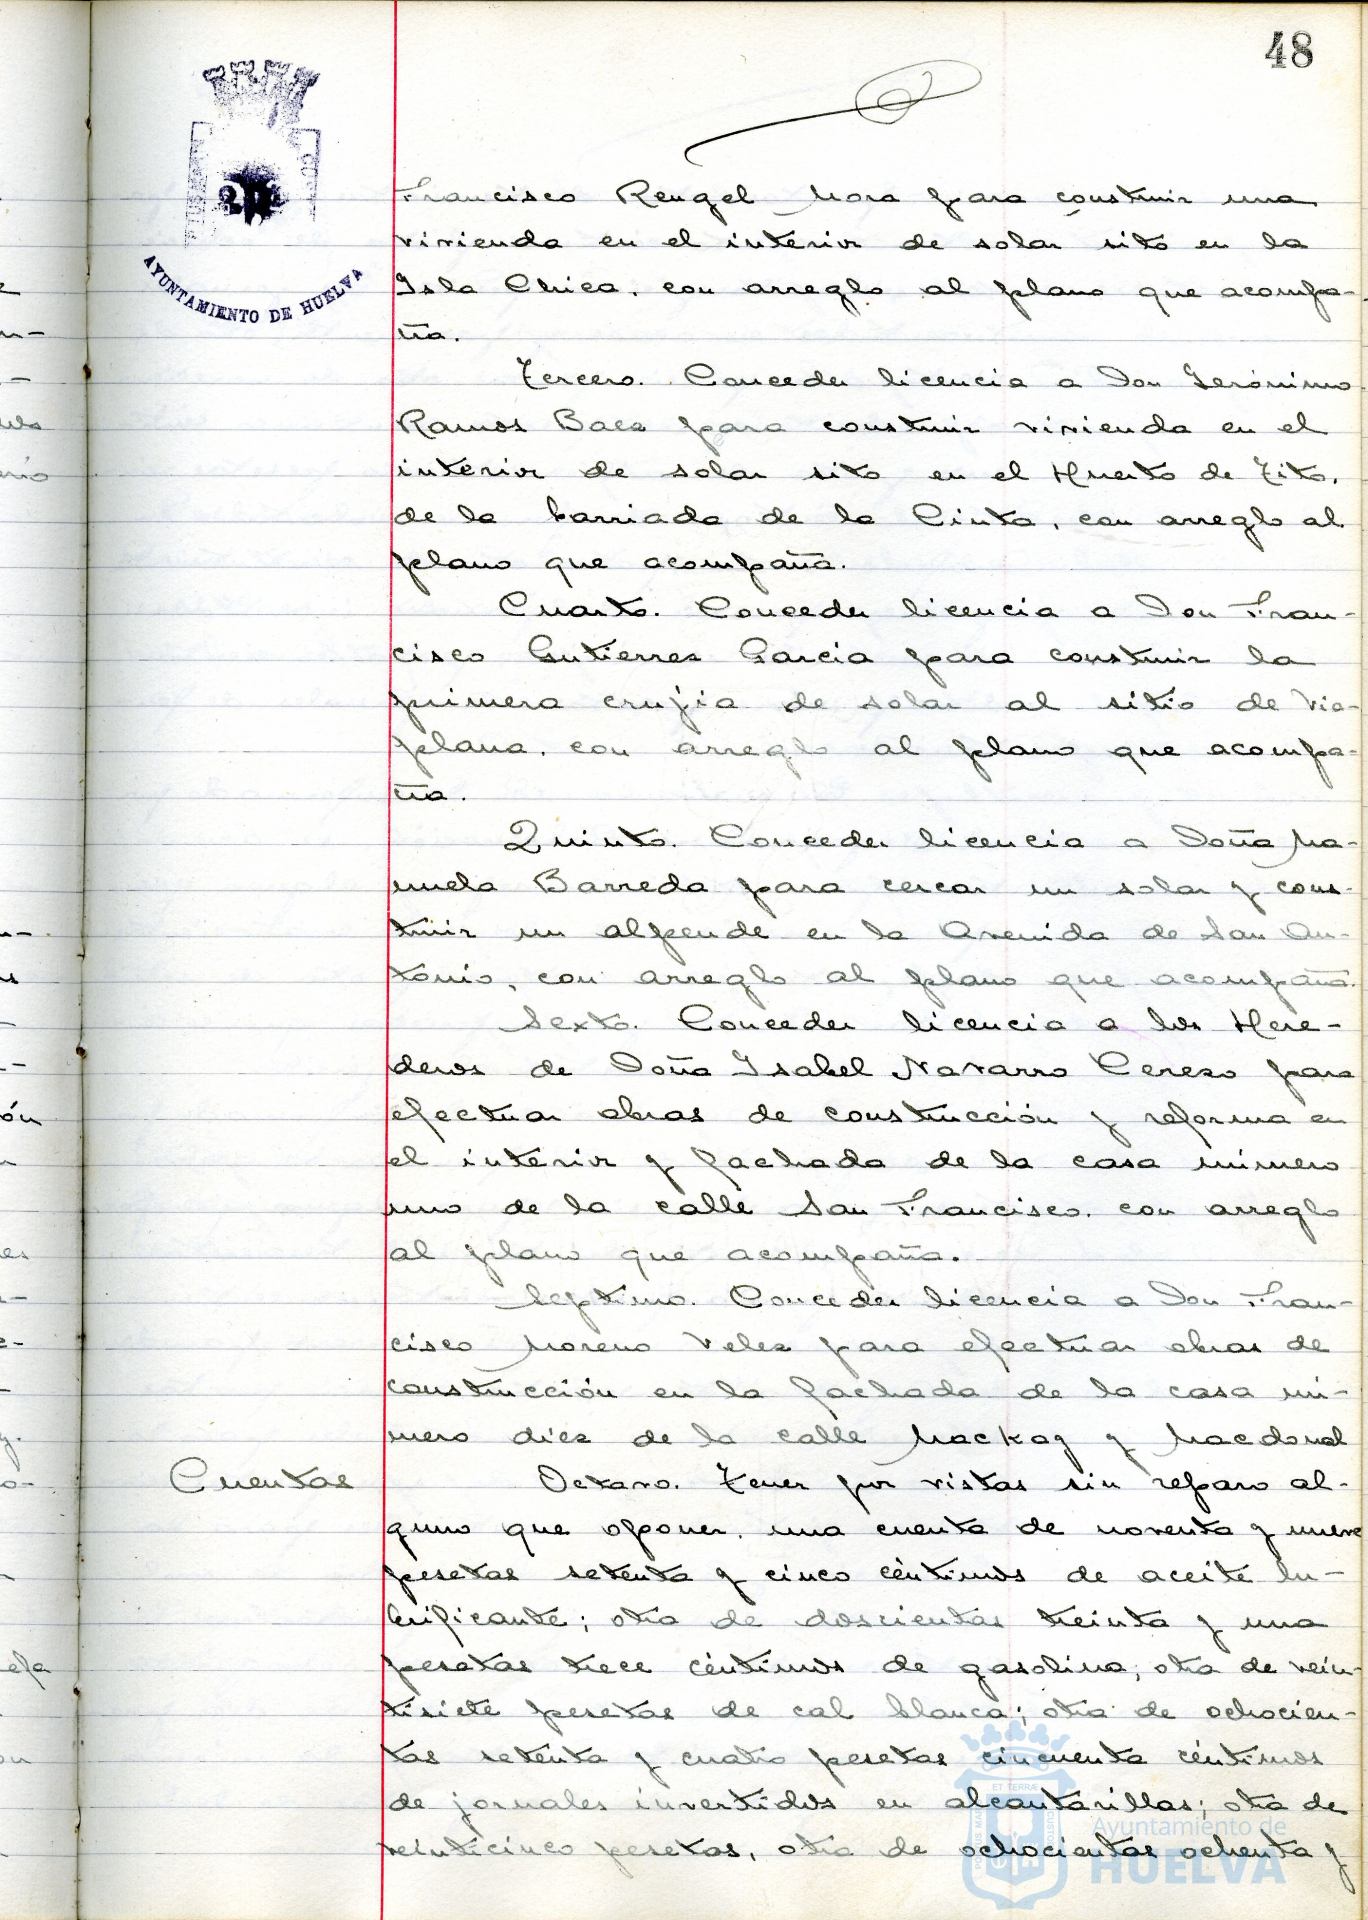 48
AYUNTAMIENTO DE HUELVA
Francisco Rengel Mora para construir una
vivienda en el interior de solar sito en la
Isla Chica, con arreglo al plano que acompa-
ña.
Tercero. Conceder licencia a Don Gerónimo
Ramos Baez para construir vivienda en el
interior de solar sito en el Huerto de Tito,
de la barriada de la Cinta, con arreglo al
plano que acompaña.
Cuarto. Conceder licencia a Don Fran-
cisco Gutierrez Garcia para construir la
primera crujia de solar al sitio de Via-
plana, con arreglo al plano que acompa-
ña.
Quinto. Conceder licencia a Doña Ma-
nuela Barreda para cercar un solar y cons-
truir un alpende en la Avenida de San An-
tonio, con arreglo al plano que acompaña.
Sexto. Conceder licencia a los Here-
deros de Doña Isabel Navarro Cerezo para
efectuar obras de construcción y reforma en
el interior y fachada de la casa número
uno de la calle San Francisco, con arreglo
al plano que acompaña.
Septimo. Conceder licencia a Don Fran-
cisco Moreno Velez para efectuar obras de
construcción en la fachada de la casa nú-
mero diez de la calle Mackay y Macdonal
Cuentas
Octavo. Tener por vistas sin reparo al-
guno que oponer, una cuenta de noventa y nueve
pesetas setenta y cinco céntimos de aceite lu-
brificante; otra de doscientas treinta y una
pesetas trece céntimos de gasolina; otra de vein-
tisiete pesetas de cal blanca; otra de ochocien-
tas setenta y cuatro pesetas cincuenta céntimos
de jornales invertidos en alcantarillas; otra de
veinticinco pesetas, otra de ochocientas ochenta y
ET TERRÆ
Ayuntamiento de
HUELVA